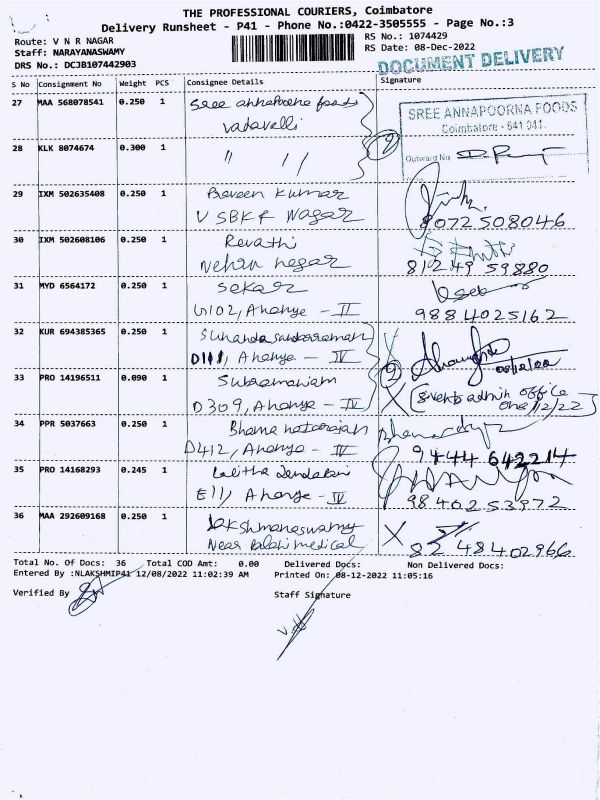 THE PROFESSIONAL COURIERS, Coimbatore
Delivery Runsheet - P41 - Phone No.:0422-3505555 - Page No.:3
Route: V N R NAGAR
RS No.: 1074429
Staff: NARAYANASWAMY
RS Date: 08-Dec-2022
DRS No.: DCJB107442903
DOCUMENT DELIVERY
S No Consignment No Weight PCS Consignee Details Signature
27 MAA 568078541 0.250 1 Sree annapoorna foods
vadavelli
SREE ANNAPOORNA FOODS
Coimbatore - 641 041.
28 KLK 8074674 0.300 1 " " (2)
Outward No
29 IXM 502635408 0.250 1 Praveen Kumar
V S B K R Nagar 8072508046
30 IXM 502608106 0.250 1 Revathi
Nehru nagar 81249 59880
31 MYD 6564172 0.250 1 Sekar
G102, Ananya - II 9884025162
32 KUR 694385365 0.250 1 Sunanda Sankararaman
D111, Ananya - IV
33 PRO 14196511 0.090 1 Subramaniam (2)
D309, Ananya - IV
34 PPR 5037663 0.250 1 Bhama natarajan
D412, Ananya - IV 9444 642214
35 PRO 14168293 0.245 1 Lalitha
E111 Ananya - IV 9840253972
36 MAA 292609168 0.250 1 Lakshmanaswamy
Near Balaji medical 82 48402966
Total No. Of Docs: 36 Total COD Amt: 0.00 Delivered Docs: Non Delivered Docs:
Entered By :NLAKSHMIP41 12/08/2022 11:02:39 AM Printed On: 08-12-2022 11:05:16
Verified By Staff Signature